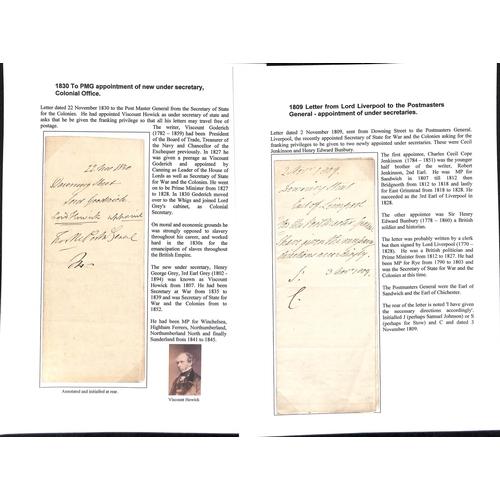 1830 To PMG appointment of new under secretary,
Colonial Office.
Letter dated 22 November 1830 to the Post Master General from the Secretary of State
for the Colonies. He had appointed Viscount Howick as under secretary of state and
asks that he be given the franking privilege so that all his letters may travel free of
postage.
The writer, Viscount Goderich
(1782 – 1859) had been President
of the Board of Trade, Treasurer of
the Navy and Chancellor of the
Exchequer previously. In 1827 he
was given a peerage as Viscount
Goderich and appointed by
Canning as Leader of the House of
Lords as well as Secretary of State
for War and the Colonies. He went
on to be Prime Minister from 1827
to 1828. In 1830 Goderich moved
over to the Whigs and joined Lord
Grey's cabinet, as Colonial
Secretary.
On moral and economic grounds he
was strongly opposed to slavery
throughout his career, and worked
hard in the 1830s for the
emancipation of slaves throughout
the British Empire.
The new under secretary, Henry
George Grey, 3rd Earl Grey (1802 –
1894) was known as Viscount
Howick from 1807. He had been
Secretary at War from 1835 to
1839 and was Secretary of State for
War and the Colonies from to
1852.
He had been MP for Winchelsea,
Highham Ferrers, Northumberland,
Northumberland North and finally
Sunderland from 1841 to 1845.
Viscount Howick
22 Nov 1830
Downing Street
Lord Goderich
Lord Howick appointed
Annotated and initialled at rear.
1809 Letter from Lord Liverpool to the Postmasters
General - appointment of under secretaries.
Letter dated 2 November 1809, sent from Downing Street to the Postmasters General.
Liverpool, the recently appointed Secretary of State for War and the Colonies asking for
the franking privileges to be given to two newly appointed under secretaries. These were Cecil
Jenkinson and Henry Edward Bunbury.
The first appointee, Charles Cecil Cope
Jenkinson (1784 – 1851) was the younger
half brother of the writer, Robert
Jenkinson, 2nd Earl. He was MP for
Sandwich in 1807 till 1812 then
Bridgnorth from 1812 to 1818 and lastly
for East Grinstead from 1818 to 1828. He
succeeded as the 3rd Earl of Liverpool in
1828.
The other appointee was Sir Henry
Edward Bunbury (1778 – 1860) a British
soldier and historian.
The letter was probably written by a clerk
but then signed by Lord Liverpool (1770 –
1828). He was a British politician and
Prime Minister from 1812 to 1827. He had
been MP for Rye from 1790 to 1803 and
was the Secretary of State for War and the
Colonies at this point.
The Postmasters General were the Earl of
Sandwich and the Earl of Chichester.
The rear of the letter is noted 'I have given
the necessary directions accordingly'.
Initialled J (perhaps Samuel Johnson) or S
(perhaps for Stow) and C and dated 3
November 1809.
2 Nov 1809.
Downing Street
Earl of Liverpool
To the Postmaster General
have given the necessary
directions accordingly.
S: 3 Nov 1809.
C.